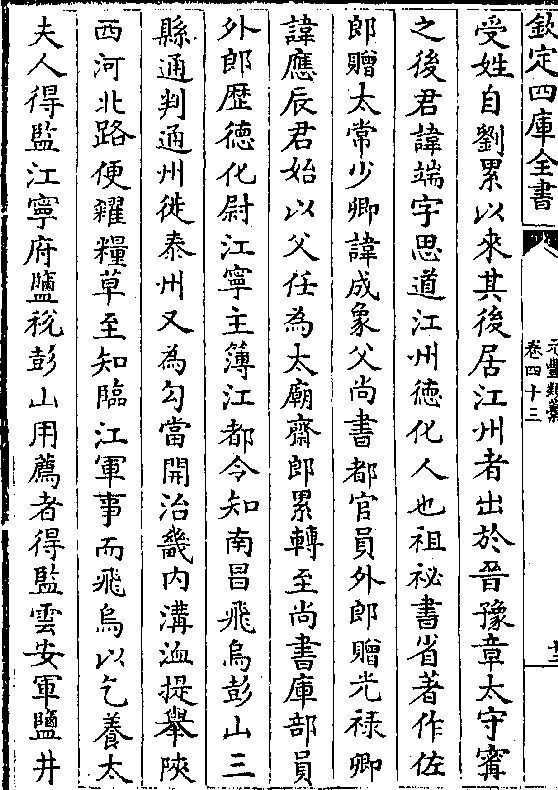 欽定四庫全書
元豐類藁
卷四十三
十二
受姓自劉累以來其後居江州者出於晉豫章太守寗
之後君諱端字思道江州徳化人也祖祕書省著作佐
郎贈太常少卿諱成象父尚書都官員外郎贈光禄卿
諱應辰君始以父任為太廟齋郎累轉至尚書庫部員
外郎歴徳化尉江寧主簿江都令知南昌飛烏彭山三
縣通判通州徙泰州又為勾當開治畿内溝洫提舉陜
西河北路便糴糧草至知臨江軍事而飛烏以乞養太
夫人得監江寧府鹽税彭山用薦者得監雲安軍鹽井